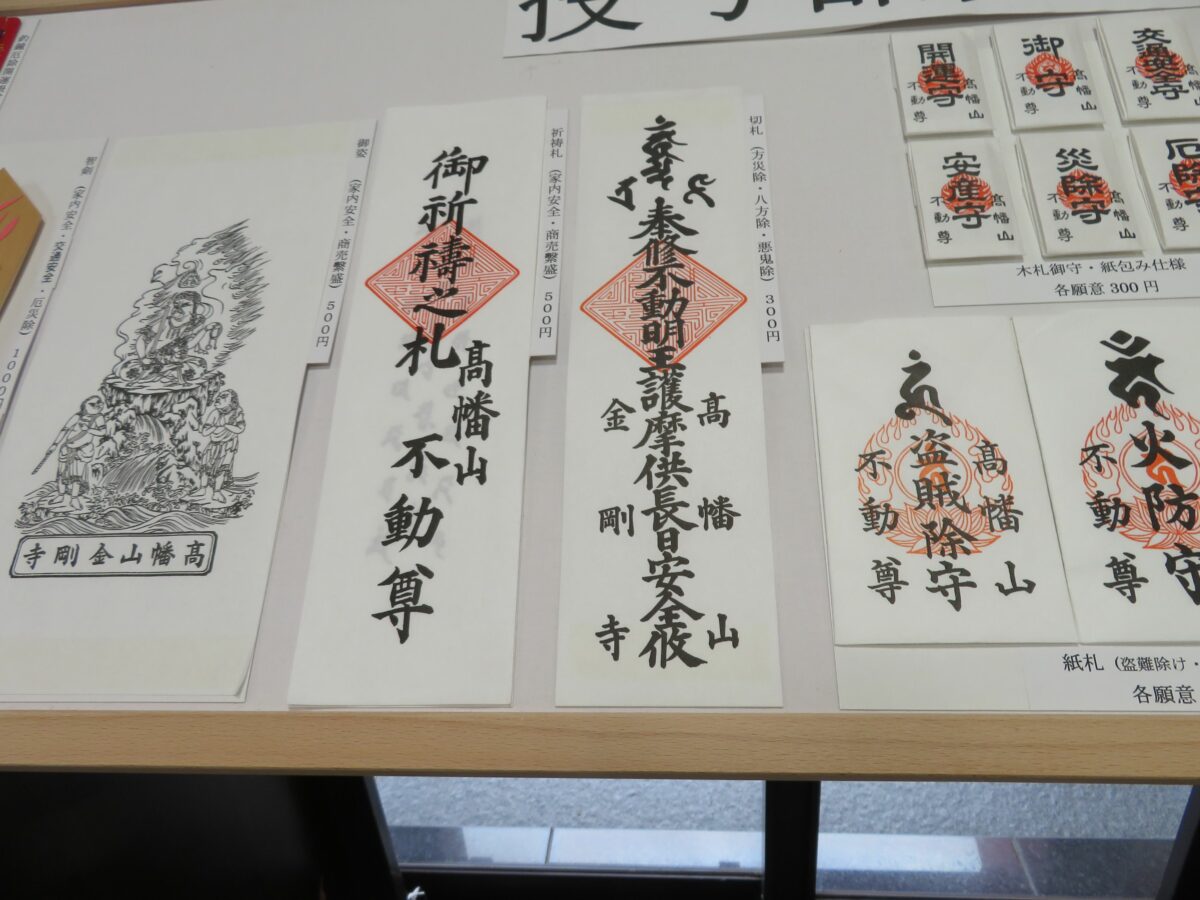 智剣 (家内安全・交通安全・厄災除) 1000円
高幡山金剛寺
御姿 (家内安全・商売繫盛) 500円
御祈禱之札
高幡山
不動尊
祈祷札 (家内安全・商売繫盛) 500円
奉修不動明王護摩供長日安全攸
高幡山
金剛寺
切札 (方災除・八方除・悪鬼除) 300円
開運守
高幡山
不動尊
御守
高幡山
不動尊
交通安全
高幡山
不動尊
安産守
高幡山
不動尊
災除守
高幡山
不動尊
木札御守・紙包み仕様
各願意300円
盗賊除守
高幡山
不動尊
火防守
不動尊
紙札 (盗難除け・
各願意